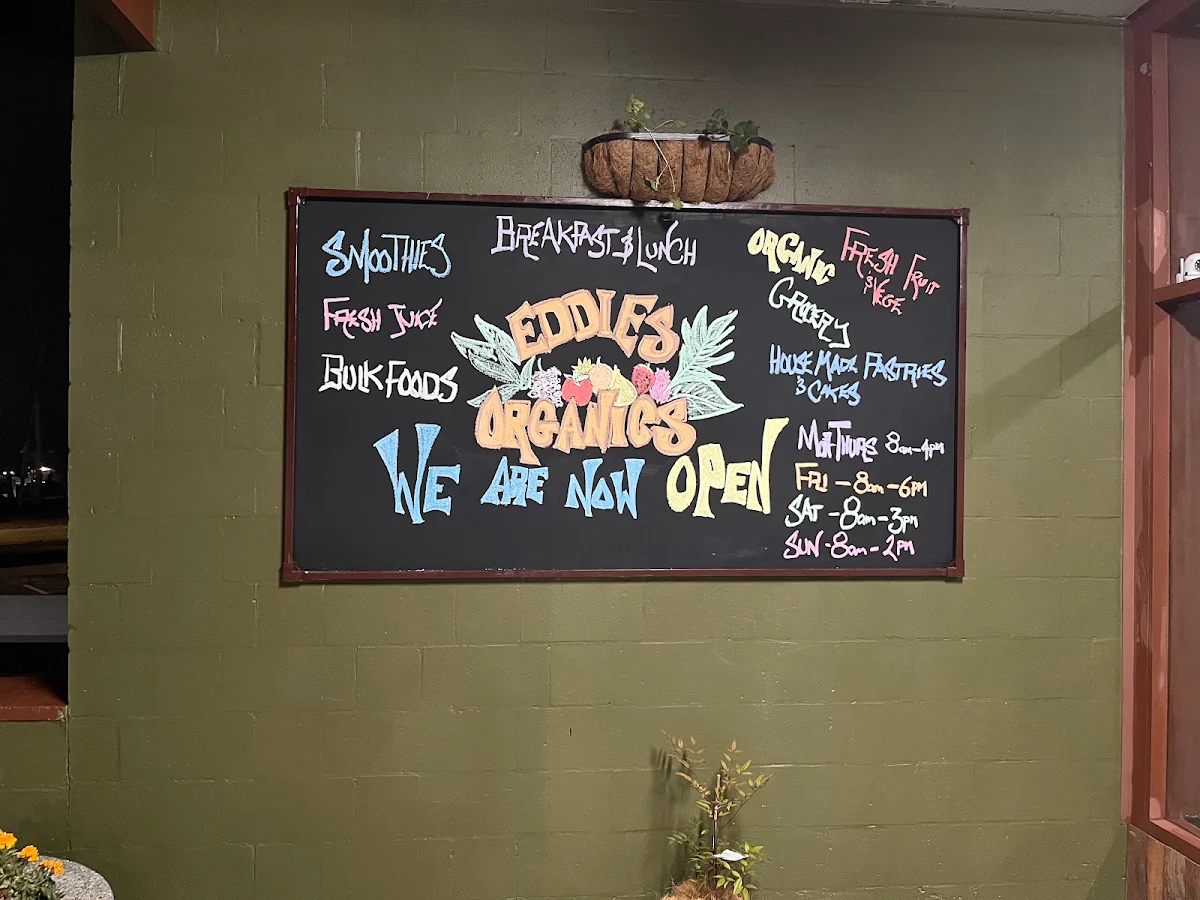 SMOOTHIES
FRESH JUICE
BULK FOODS
BREAKFAST & LUNCH
EDDIES
ORGANICS
WE ARE NOW OPEN
ORGANIC
GROCERY
FRESH FRUIT
& VEGE
HOUSE MADE PASTRIES
& CAKES
MON-THURS 8am-4pm
FRI - 8am - 6PM
SAT - 8am - 3pm
SUN - 8am - 2PM